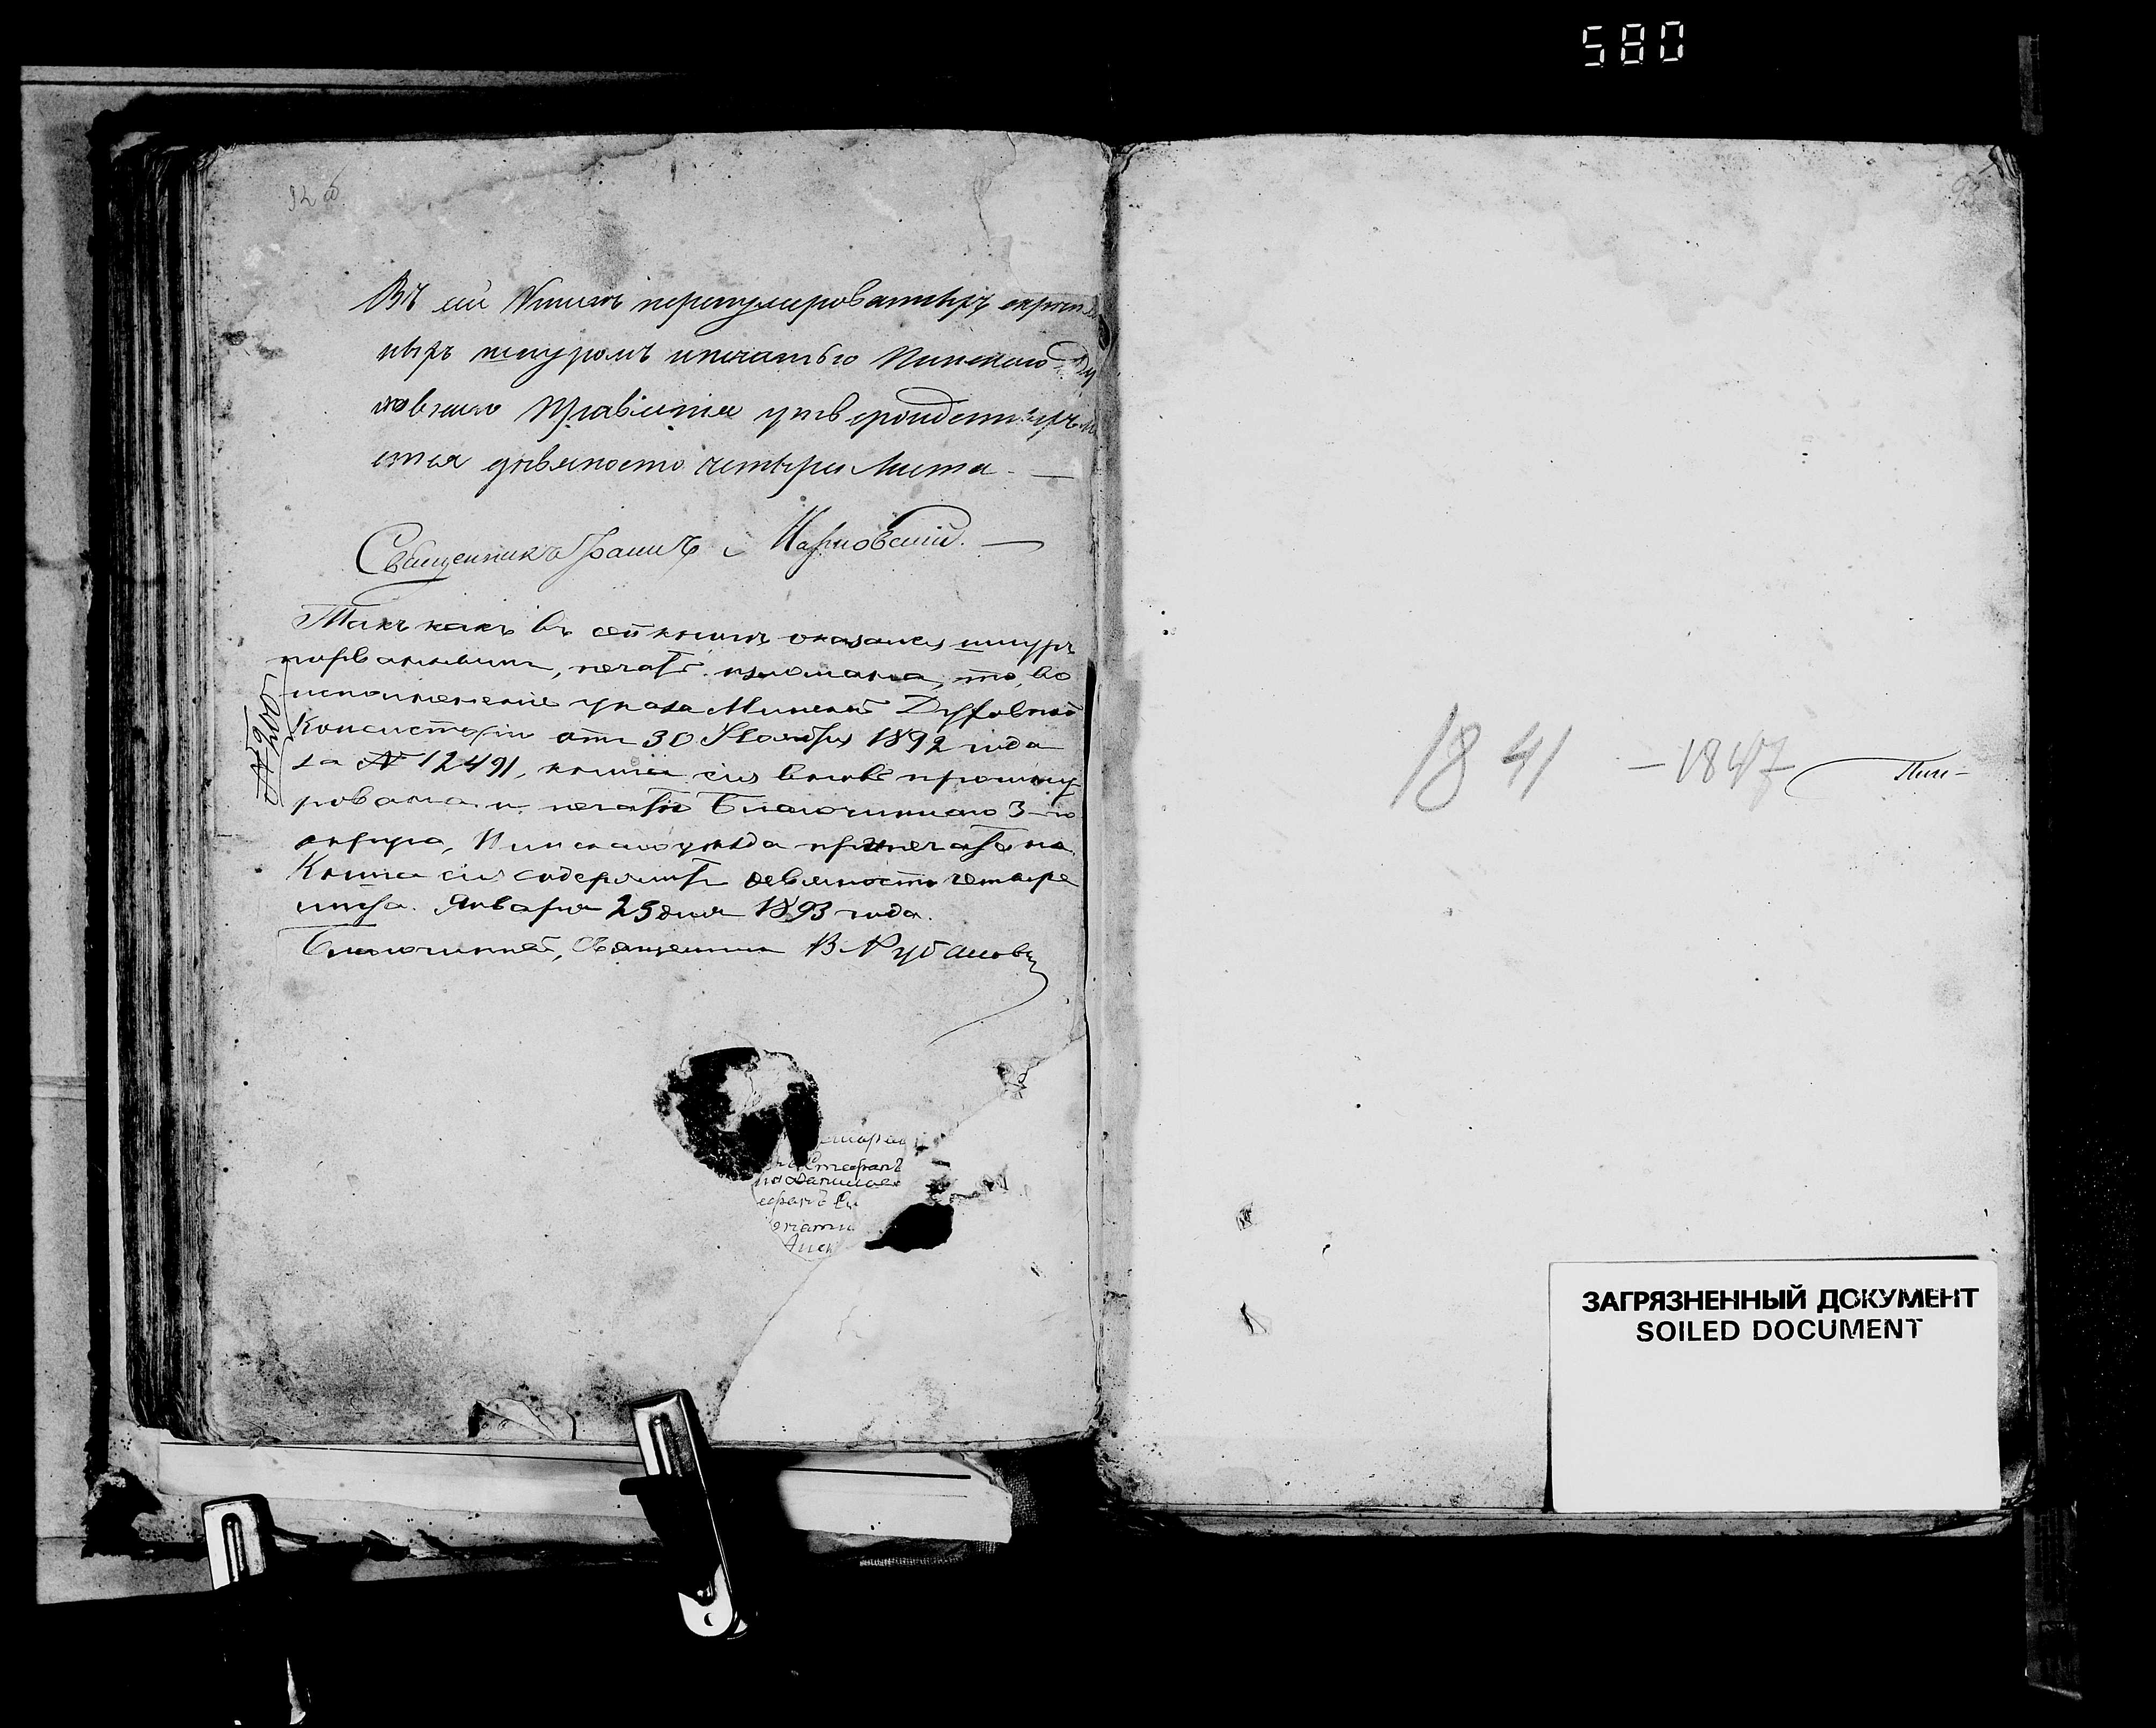 580
Въ сей Книгѣ перенумерованныхъ скрѣплен
ныхъ шнуромъ и печатью Пинскаго Ду
ховнаго Правленія утвержденныхъ
девяносто четыри листа. —
Священникъ Марновскій. —
Такъ какъ въ сей книгѣ оказался шнуръ
порваннымъ, печать изломана, то, во
исполненіе указа Минской Духовной
Консисторіи отъ 30 Ноября 1892 года
за № 12491, книга сія вновь прошну
рована и печатью Благочиннаго 3-го
округа, Пинскаго уѣзда припечатана.
Книга сія содержитъ девяносто четыре
листа. Января 25 дня 1893 года.
Благочинный, Священникъ В. Рубанович
№ 200
Стефанъ
1841 – 1847 Пин-
ЗАГРЯЗНЕННЫЙ ДОКУМЕНТ
SOILED DOCUMENT